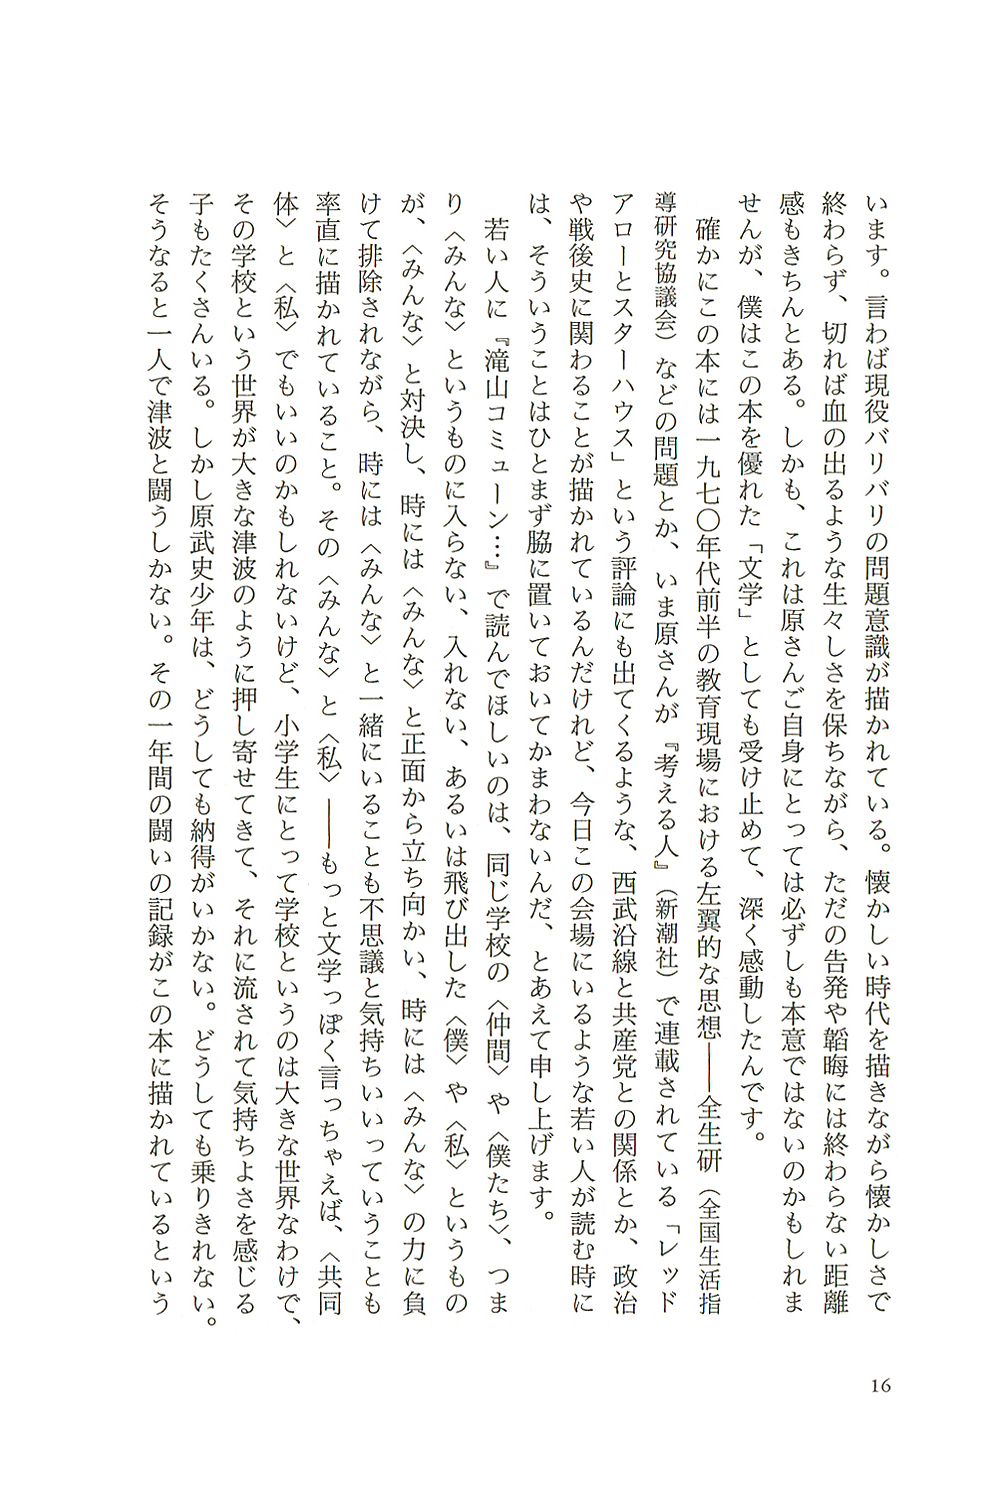 います。言わば現役バリバリの問題意識が描かれている。懐かしい時代を描きながら懐かしさで
終わらず、切れば血の出るような生々しさを保ちながら、ただの告発や韜晦には終わらない距離
感もきちんとある。しかも、これは原さんご自身にとっては必ずしも本意ではないのかもしれま
せんが、僕はこの本を優れた「文学」としても受け止めて、深く感動したんです。
確かにこの本には一九七〇年代前半の教育現場における左翼的な思想――全生研（全国生活指
導研究協議会）などの問題とか、いま原さんが『考える人』（新潮社）で連載されている「レッド
アローとスターハウス」という評論にも出てくるような、西武沿線と共産党との関係とか、政治
や戦後史に関わることが描かれているんだけれど、今日この会場にいるような若い人が読む時に
は、そういうことはひとまず脇に置いておいてかまわないんだ、とあえて申し上げます。
若い人に『滝山コミューン…』で読んでほしいのは、同じ学校の〈仲間〉や〈僕たち〉、つま
り〈みんな〉というものに入らない、入れない、あるいは飛び出した〈僕〉や〈私〉というもの
が、〈みんな〉と対決し、時には〈みんな〉と正面から立ち向かい、時には〈みんな〉の力に負
けて排除されながら、時には〈みんな〉と一緒にいることも不思議と気持ちいいっていうことも
率直に描かれていること。その〈みんな〉と〈私〉――もっと文学っぽく言っちゃえば、〈共同
体〉と〈私〉でもいいのかもしれないけど、小学生にとって学校というのは大きな世界なわけで、
その学校という世界が大きな津波のように押し寄せてきて、それに流されて気持ちよさを感じる
子もたくさんいる。しかし原武史少年は、どうしても納得がいかない。どうしても乗りきれない。
そうなると一人で津波と闘うしかない。その一年間の闘いの記録がこの本に描かれているという
16